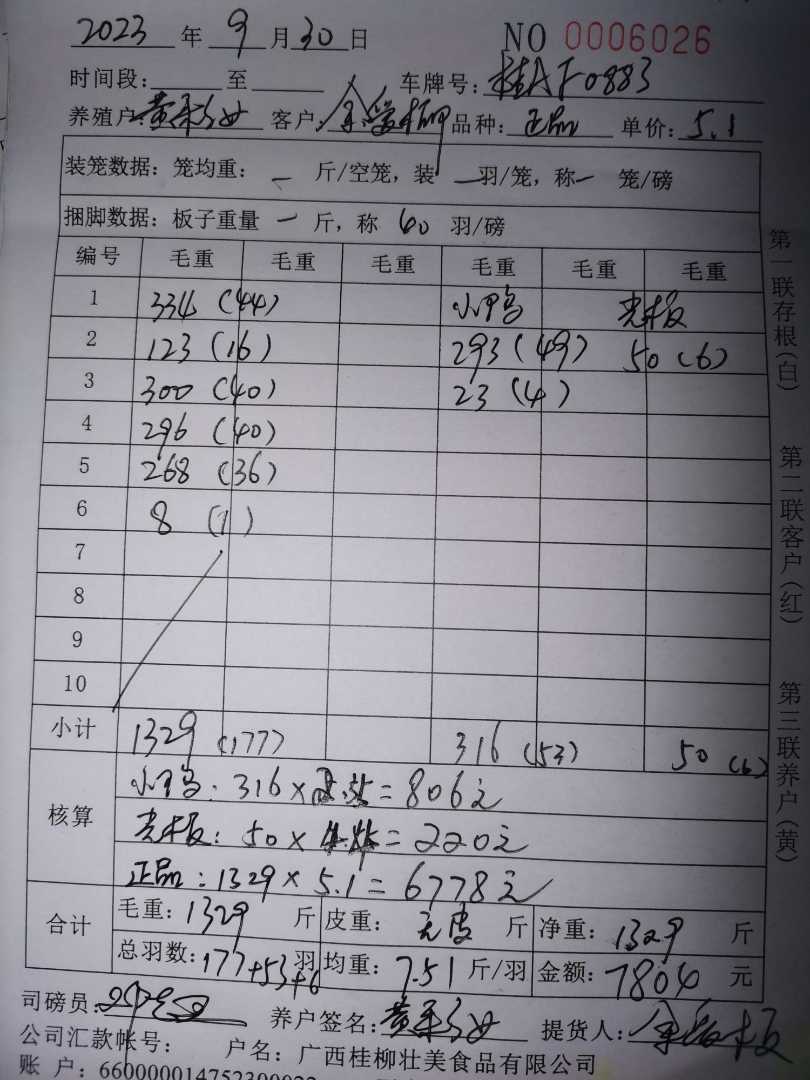 2023 年 9 月 30 日 NO 0006026
时间段: 至 车牌号: 桂AF0883
养殖户 黄 客户: 品种: 正品 单价: 5.1
装笼数据: 笼均重: — 斤/空笼, 装 — 羽/笼, 称 — 笼/磅
捆脚数据: 板子重量 — 斤, 称 60 羽/磅
编号 毛重 毛重 毛重 毛重 毛重 毛重
1 334 (44) 小甲鸟 光板
2 123 (16) 293 (49) 50 (6)
3 300 (40) 23 (4)
4 296 (40)
5 268 (36)
6 8 (1)
7
8
9
10
小计 1329 (177) 316 (53) 50 (6)
核算
小甲鸟: 316 × = 806元
光板: 50 × = 220元
正品: 1329 × 5.1 = 6778元
合计 毛重: 1329 斤 皮重: 无皮 斤 净重: 1329 斤
总羽数: 177+53+6 羽 均重: 7.51 斤/羽 金额: 7804 元
司磅员: 养户签名: 黄 提货人:
公司汇款帐号: 户名: 广西桂柳壮美食品有限公司
账 户: 660000014752300022
第一联存根(白) 第二联客户(红) 第三联养户(黄)